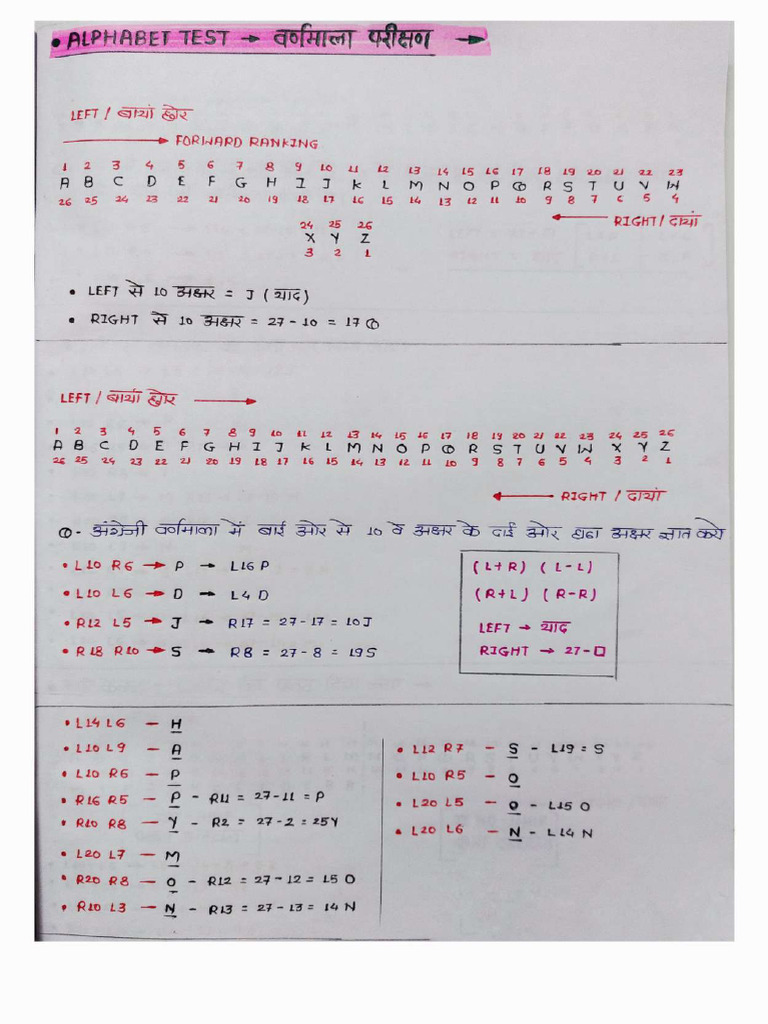 • ALPHABET TEST → वर्णमाला परीक्षण →
LEFT / बायां छोर
→ FORWARD RANKING
1 2 3 4 5 6 7 8 9 10 11 12 13 14 15 16 17 18 19 20 21 22 23
A B C D E F G H I J K L M N O P Q R S T U V W
26 25 24 23 22 21 20 19 18 17 16 15 14 13 12 11 10 9 8 7 6 5 4
← RIGHT / दायां
24 25 26
X Y Z
3 2 1
• LEFT से 10 अक्षर = J (याद)
• RIGHT से 10 अक्षर = 27 - 10 = 17 Q
LEFT / बायां छोर →
1 2 3 4 5 6 7 8 9 10 11 12 13 14 15 16 17 18 19 20 21 22 23 24 25 26
A B C D E F G H I J K L M N O P Q R S T U V W X Y Z
26 25 24 23 22 21 20 19 18 17 16 15 14 13 12 11 10 9 8 7 6 5 4 3 2 1
← RIGHT / दायां
Q - अंग्रेजी वर्णमाला में बाई ओर से 10 वे अक्षर के दाई ओर छठा अक्षर ज्ञात करो
• L10 R6 → P → L16 P
• L10 L6 → D → L4 D
• R12 L5 → J → R17 = 27-17 = 10J
• R18 R10 → S → R8 = 27-8 = 19S
(L+R) (L-L)
(R+L) (R-R)
LEFT → याद
RIGHT → 27-□
• L14 L6 – H
• L10 L9 – A
• L10 R6 – P
• R16 R5 – P – R11 = 27-11 = P
• R10 R8 – Y – R2 = 27-2 = 25Y
• L20 L7 – M
• R20 R8 – O – R12 = 27-12 = 15 O
• R10 L3 → N – R13 = 27-13 = 14 N
• L12 R7 – S – L19 = S
• L10 R5 – O
• L20 L5 – O – L15 O
• L20 L6 – N – L14 N